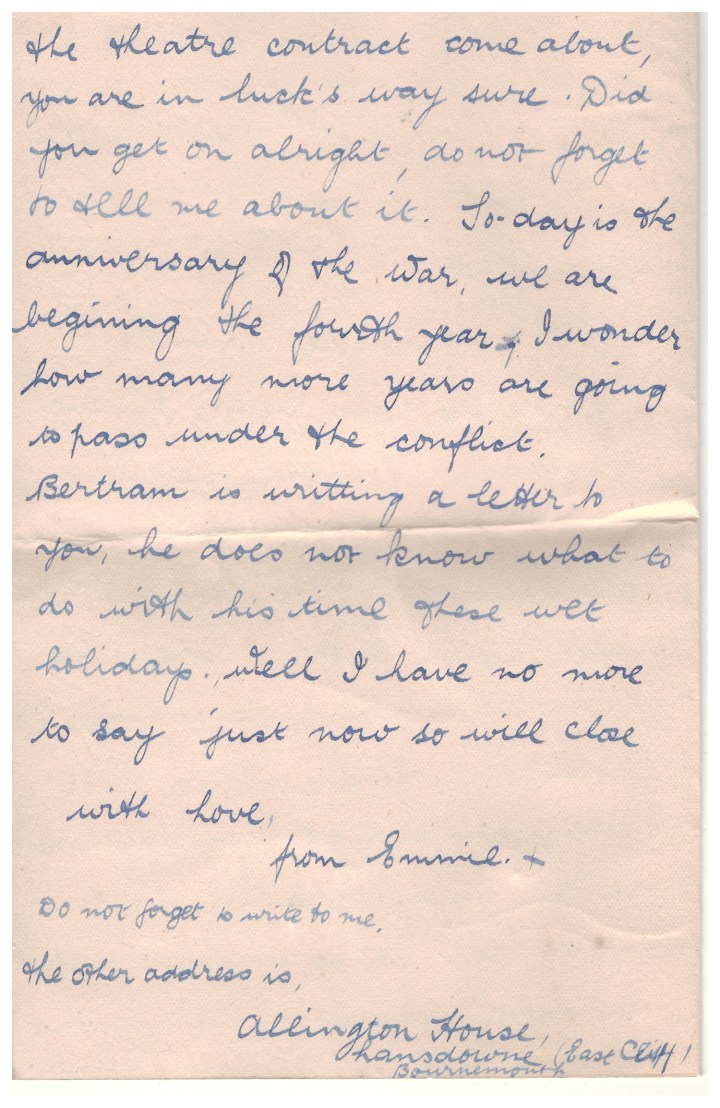 the theatre contract come about,
you are in luck's way sure. Did
you get on alright, do not forget
to tell me about it. To-day is the
anniversary of the war, we are
begining the fourth year, I wonder
how many more years are going
to pass under the conflict.
Bertram is writting a letter to
you, he does not know what to
do with his time these wet
holidays., well I have no more
to say just now so will close
with love,
from Emmie. x
Do not forget to write to me.
the other address is,
Allington House,
Lansdowne (East Cliff)
Bournemouth